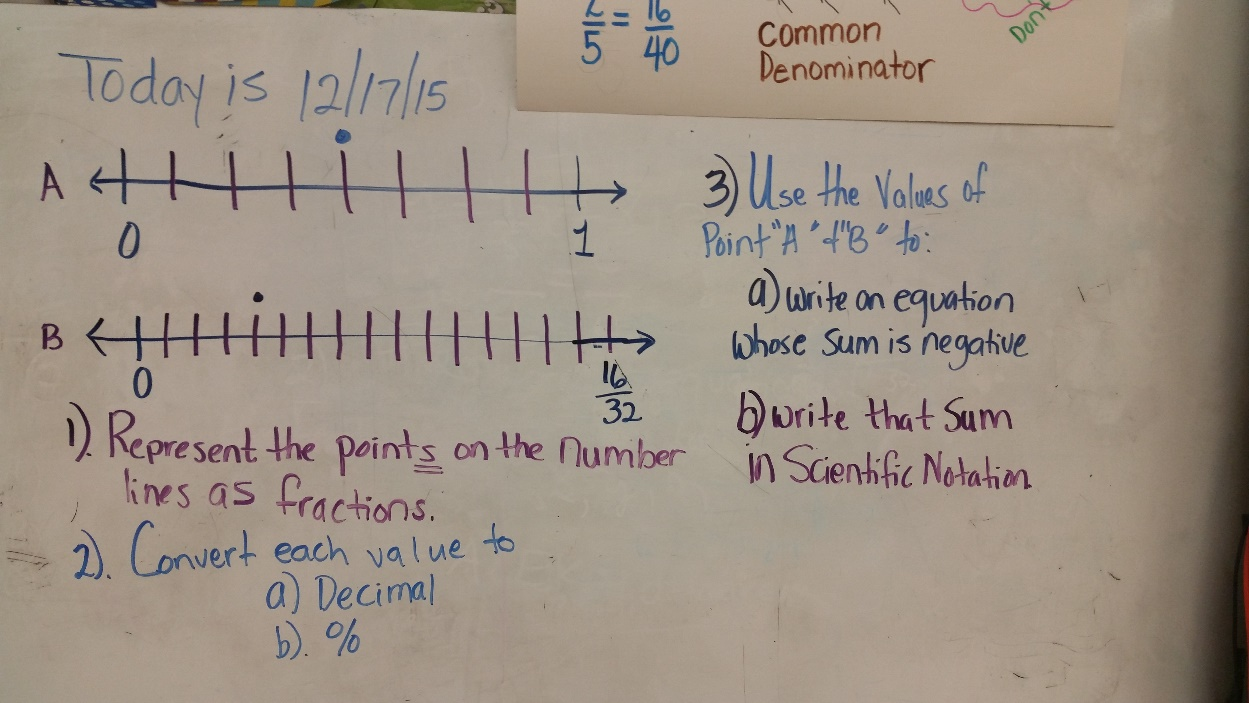 2/5 = 16/40
Common
Denominator
Don't
Today is 12/17/15
A
0 1
B
0 16/32
1). Represent the points on the number
lines as fractions.
2). Convert each value to
a) Decimal
b). %
3) Use the Values of
Point "A" + "B" to:
a) write an equation
whose sum is negative
b) write that Sum
in Scientific Notation.